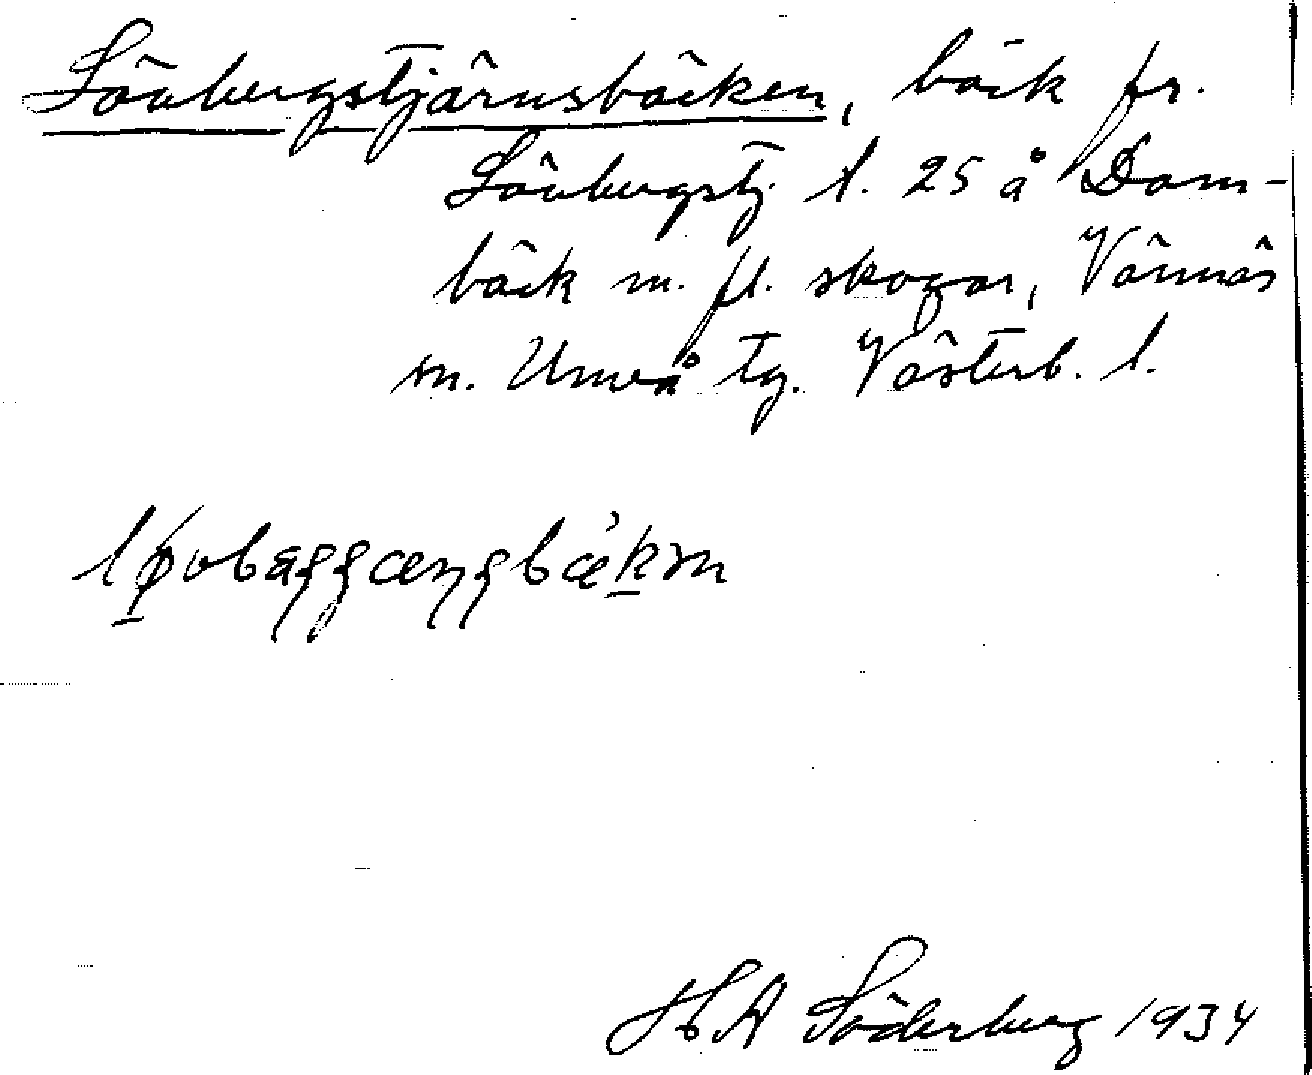 Lövbergstjärnsbäcken, bäck fr.
Lövbergstj. l. 25 å Dam-
bäck m. fl. skogar, Vännäs
sn. Umeå tg. Västerb. l.
H A Söderberg 1934